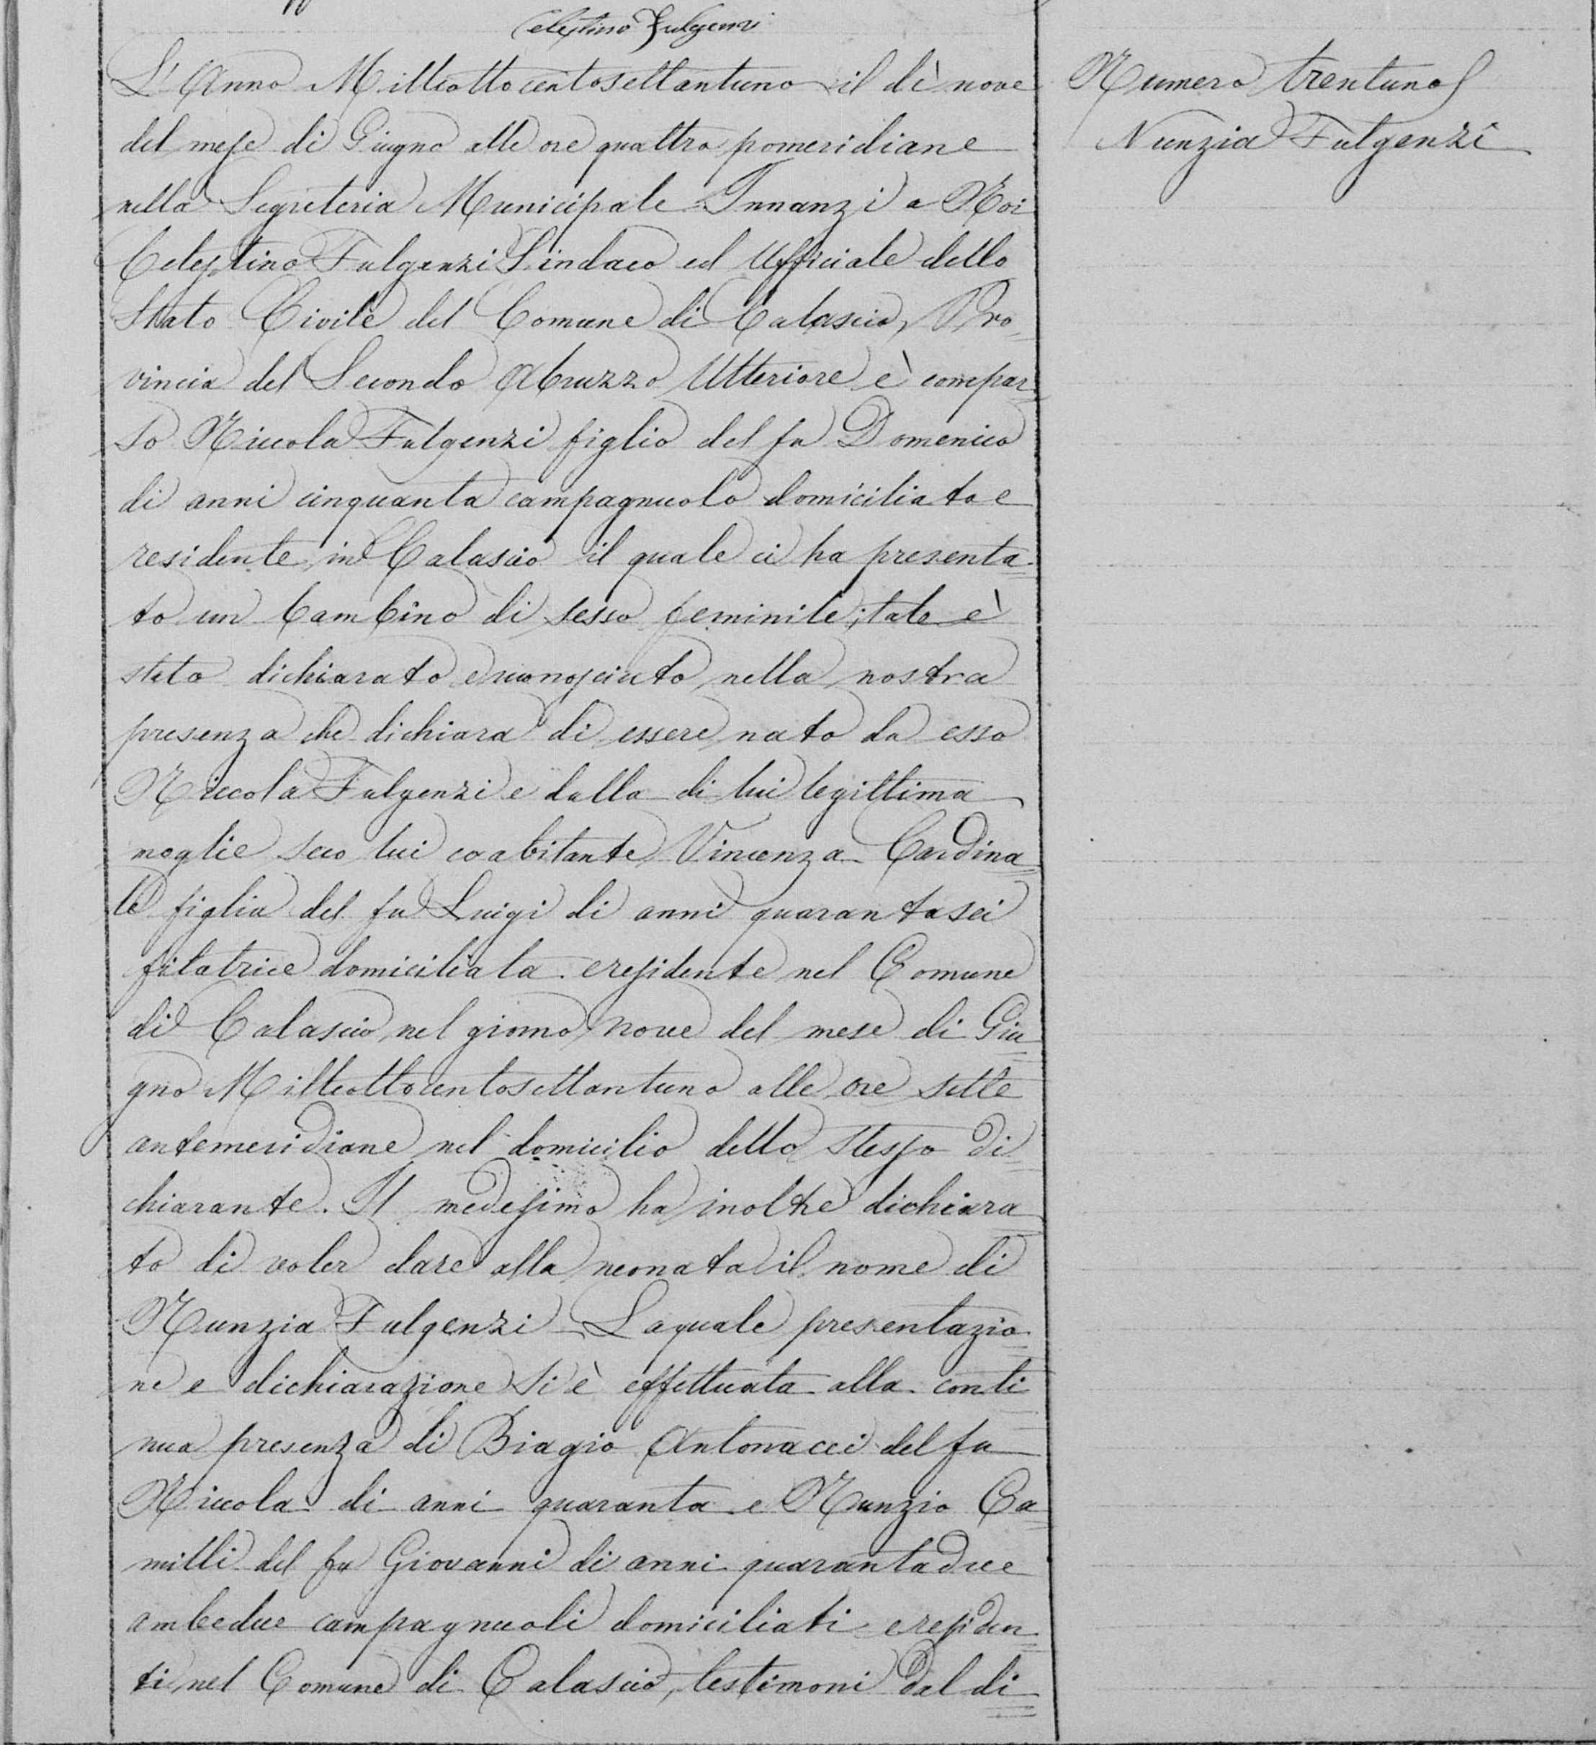 Celestino Fulgenzi
L'Anno Milleottocentosettantuno il dì nove
del mese di Giugno alle ore quattro pomeridiane
nella Segreteria Municipale Innanzi a Noi
Celestino Fulgenzi Sindaco ed Ufficiale dello
Stato Civile del Comune di Calascio, Pro
vincia del Secondo Abruzzo Ulteriore è compar
so Niccola Fulgenzi figlio del fu Domenico
di anni cinquanta campagnuolo domiciliato e
residente in Calascio il quale ci ha presenta
to un bambino di sesso feminile; tale è
stato dichiarato e riconosciuto nella nostra
presenza che dichiara di essere nato da esso
Niccola Fulgenzi e dalla di lui legittima
moglie seco lui coabitante Vincenza Cardina
le figlia del fu Luigi di anni quarantasei
filatrice domiciliata e residente nel Comune
di Calascio nel giorno nove del mese di Giu
gno Milleottocentosettantuno alle ore sette
antemeridiane nel domicilio dello stesso di
chiarante. Il medesimo ha inoltre dichiara
to di voler dare alla neonata il nome di
Nunzia Fulgenzi La quale presentazio
ne e dichiarazione si è effettuata alla conti
nua presenza di Biagio Antonacci del fu
Niccola di anni quaranta e Nunzio Ca
milli del fu Giovanni di anni quarantadue
ambedue campagnuoli domiciliati e residen
ti nel Comune di Calascio, testimoni dal di
Numero trentuno
Nunzia Fulgenzi